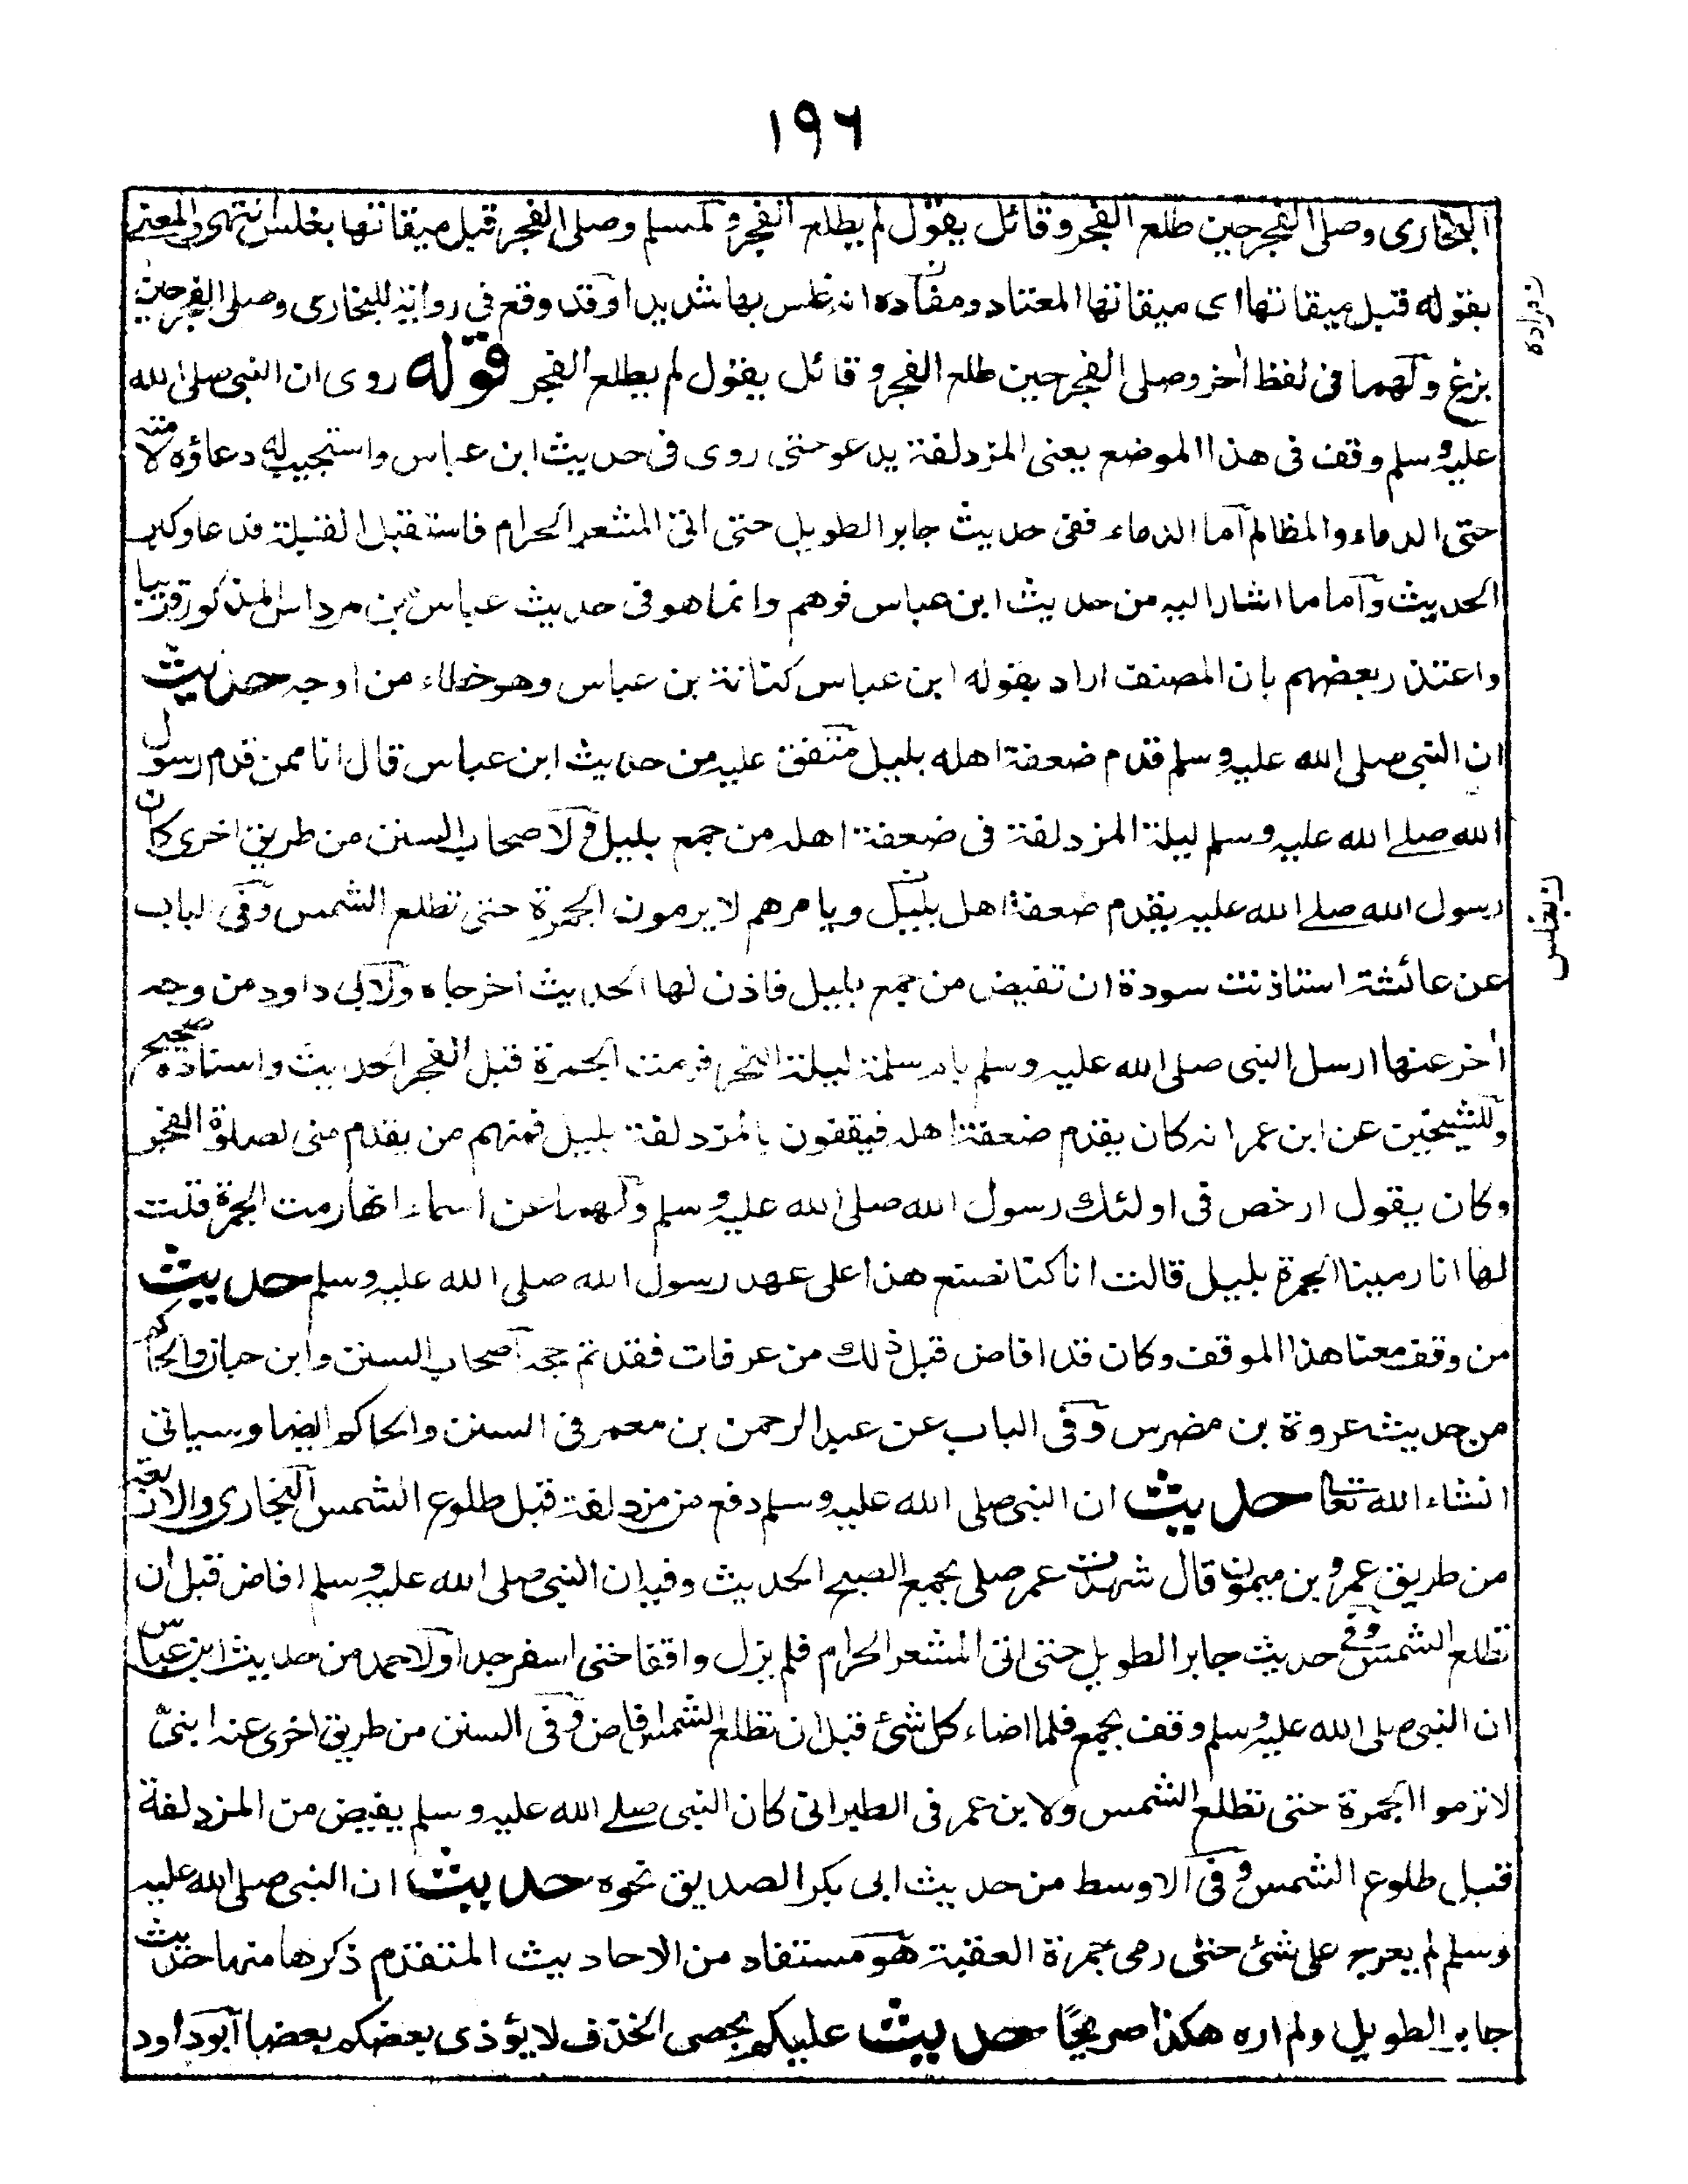 ١٩٦
البخارى وصلى الفجر حين طلع الفجر وقائل يقول لم يطلع الفجر ولمسلم وصلى الفجر قبل ميقاتها بغلس انتهى والمعنى
بقوله قبل ميقاتها اى ميقاتها المعتاد ومفاده انه غلس بها شديدا وقد وقع فى رواية للبخارى وصلى الفجر حين
بزغ ولهما فى لفظ اخر وصلى الفجر حين طلع الفجر وقائل يقول لم يطلع الفجر قوله روى ان النبى صلى الله
عليه وسلم وقف فى هذا الموضع يعنى المزدلفة يدعو حتى روى فى حديث ابن عباس واستجيب له دعاؤه لامته
حتى الدماء والمظالم اما الدماء ففى حديث جابر الطويل حتى اتى المشعر الحرام فاستقبل القبلة فدعا وكبر
الحديث واما ما اشار اليه من حديث ابن عباس فوهم وانما هو فى حديث عباس بن مرداس المذكور قريبا
واعتذر بعضهم بان المصنف اراد بقوله ابن عباس كنانة بن عباس وهو خطاء من اوجه حديث
ان النبى صلى الله عليه وسلم قدم ضعفة اهله بليل متفق عليه من حديث ابن عباس قال انا ممن قدم رسول
الله صلے الله عليه وسلم ليلة المزدلفة فى ضعفة اهله من جمع بليل ولاصحاب السنن من طريق اخرى كان
رسول الله صلے الله عليه يقدم ضعفة اهله بليل ويامرهم لا يرمون الجمرة حتى تطلع الشمس وفى الباب
عن عائشة استاذنت سودة ان تفيض من جمع بليل فاذن لها الحديث اخرجاه ولابى داود من وجه
اخر عنها ارسل النبى صلى الله عليه وسلم بام سلمة ليلة النحر فرمت الجمرة قبل الفجر الحديث واسناده صحيح
وللشيخين عن ابن عمر انه كان يقدم ضعفة اهله فيقفون بالمزدلفة بليل فمنهم من يقدم منى لصلوة الفجر
وكان يقول ارخص فى اولئك رسول الله صلى الله عليه وسلم ولهما عن اسماء انها رمت الجمرة قلت
لها انا رمينا الجمرة بليل قالت انا كنا نصنع هذا على عهد رسول الله صلى الله عليه وسلم حديث
من وقف معنا هذا الموقف وكان قد افاض قبل ذلك من عرفات فقد تم حجه اصحاب السنن وابن حبان والحاكم
من حديث عروة بن مضرس وفى الباب عن عبد الرحمن بن معمر فى السنن والحاكم ايضا وسياتى
انشاء الله تعا حديث ان النبى صلى الله عليه وسلم دفع من مزدلفة قبل طلوع الشمس البخارى والاربعة
من طريق عمرو بن ميمون قال شهدت عمر صلى بجمع الصبح الحديث وفيه ان النبى صلى الله عليه وسلم افاض قبل ان
تطلع الشمس وفى حديث جابر الطويل حتى اتى المشعر الحرام فلم يزل واقفا حتى اسفر جدا ولاحمد من حديث ابن عباس
ان النبى صلى الله عليه وسلم وقف بجمع فلما اضاء كل شئ قبل ان تطلع الشمس افاض وفى السنن من طريق اخرى عنه ابنى
لا ترموا الجمرة حتى تطلع الشمس ولابن عمر فى الطبرانى كان النبى صلے الله عليه وسلم يفيض من المزدلفة
قبل طلوع الشمس وفى الاوسط من حديث ابى بكر الصديق نحوه حديث ان النبى صلى الله عليه
وسلم لم يعرج على شئ حتى رمى جمرة العقبة هو مستفاد من الاحاديث المتقدم ذكرها منها حديث
جابر الطويل ولم اره هكذا صريحًا حديث عليكم بحصى الخذف لا يؤذى بعضكم بعضا ابو داود